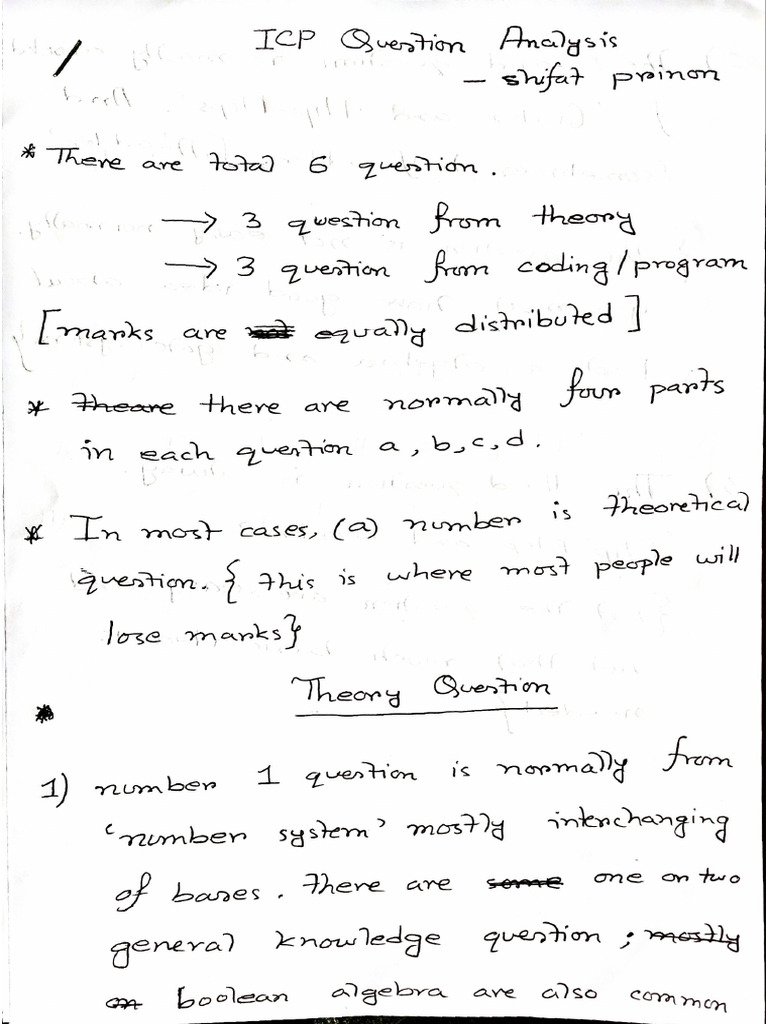 ICP Question Analysis
– shifat prinon
* There are total 6 question.
→ 3 question from theory
→ 3 question from coding/program
[marks are equally distributed]
* theare there are normally four parts
in each question a, b, c, d.
* In most cases, (a) number is theoretical
question. { this is where most people will
lose marks}
Theory Question
1) number 1 question is normally from
'number system' mostly interchanging
of bases. There are some one or two
general knowledge question ; mostly
on boolean algebra are also common